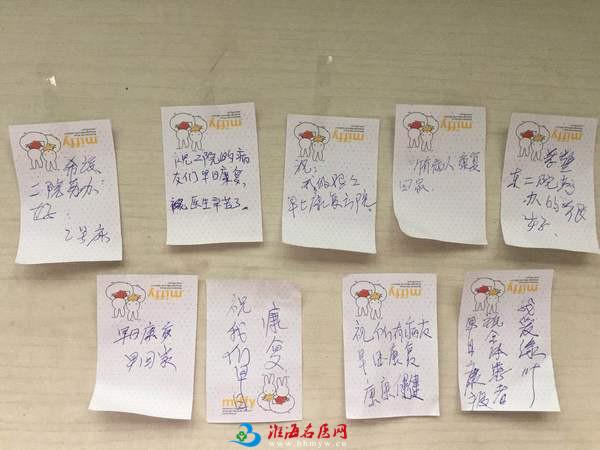 希望
二院越办
好
2号床
miffy
祝二院的病
友们早日康复,
祝医生辛苦了。
miffy
祝:
早七康复出院。
miffy
所有病人康复
回家
miffy
希望
二院越
办的很
好
miffy
早日康复
早回家
miffy
祝我们早日
康复
miffy
祝所有病友
早日康复
康康健健
miffy
我爱绿叶
祝全体患者
早日康复
miffy
淮海名医网
www.hhmyw.cn